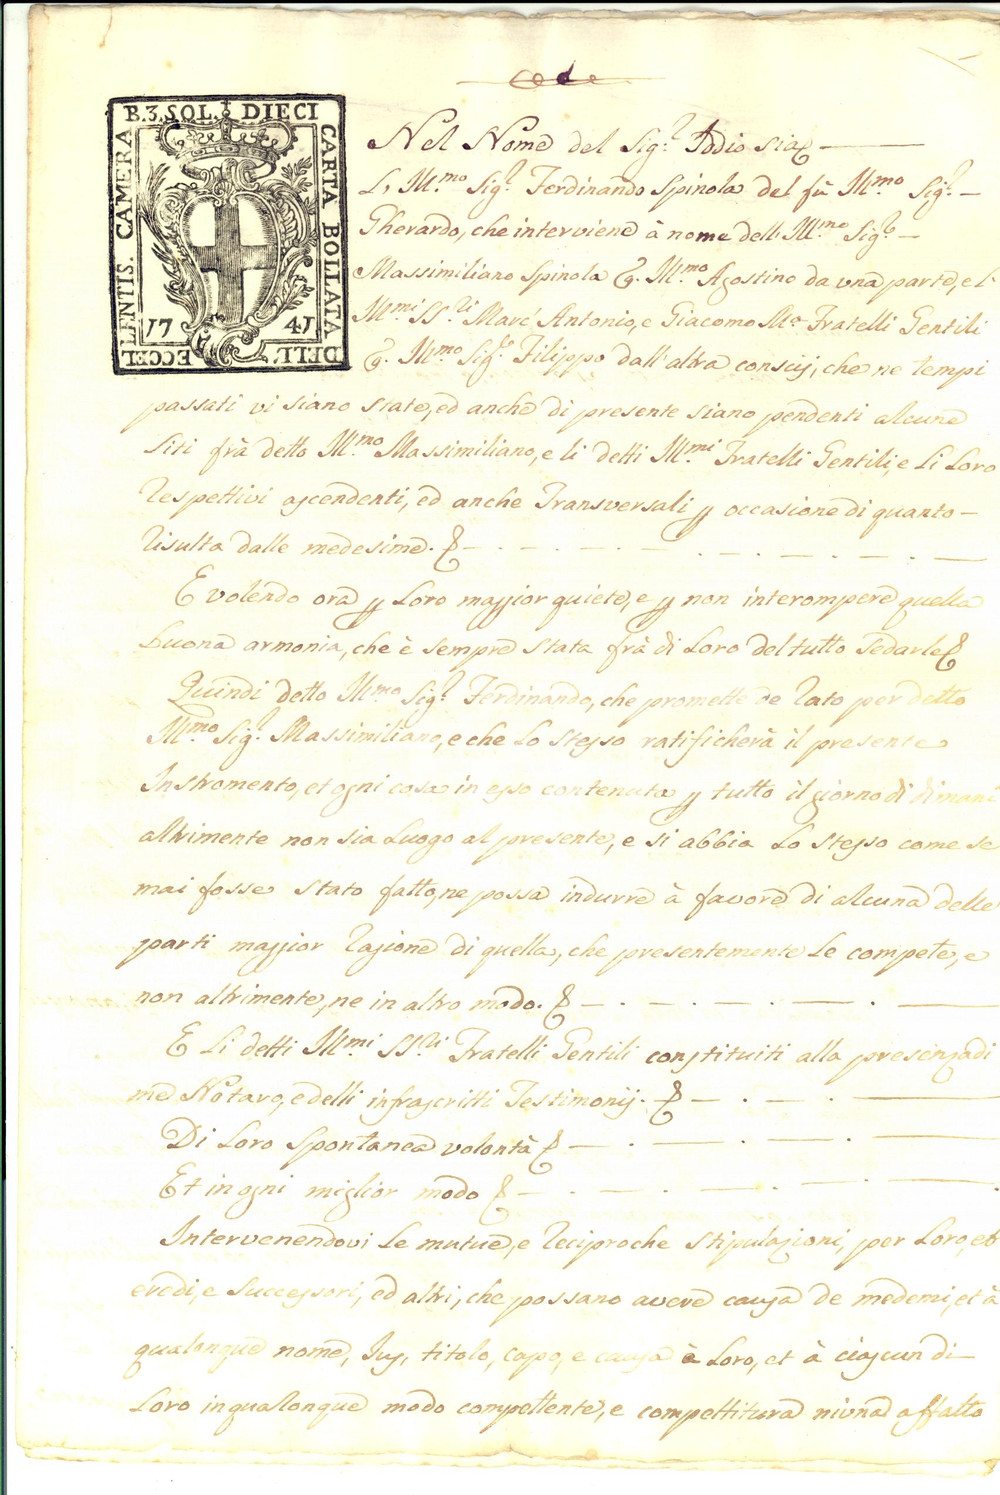 Cede
B. 3. SOL. DIECI
CARTA BOLLATA
DELL'
ECCEL
LENTIS. CAMERA
17 41
Nel Nome del Sig.r Iddio sia
L' Ill.mo Sig.r Ferdinando Spinola del fù Ill.mo Sig.r
Gherardo, che interviene à nome dell' Ill.mo Sig.e
Massimiliano Spinola q. Ill.mo Agostino da una parte, e l'
Ill.mi SS.ri Marc' Antonio, e Giacomo M.a Fratelli Gentili
q. Ill.mo Sig.r Filippo dall' altra conscij, che ne tempi
passati vi siano state, ed anche di presente siano pendenti alcune
Liti frà detto Ill.mo Massimiliano, e li detti Ill.mi Fratelli Gentili, e Li Loro
respettivi ascendenti, ed anche Transversali p occasione di quanto
risulta dalle medesime.
E volendo ora p Loro maggior quiete, e p non interompere quella
buona armonia, che è sempre stata frà di Loro del tutto sedarle
Quindi detto Ill.mo Sig.r Ferdinando, che promette de rato per detto
Ill.mo Sig.r Massimiliano, e che Lo stesso ratificherà il presente
Instromento, et ogni cosa in esso contenuta p tutto il giorno di dimani
altrimente non sia Luogo al presente, e si abbia Lo stesso come se
mai fosse stato fatto, ne possa indurre à favore di alcuna delle
parti maggior ragione di quella, che presentemente Le compete, e
non altrimente, ne in altro modo.
E Li detti Ill.mi SS.ri Fratelli Gentili constituiti alla presenza di
me Notaro, e delli infrascritti Testimonij.
Di Loro spontanea volontà
Et in ogni miglior modo
Intervenendovi Le mutue, e reciproche stipulazioni, per Loro,
eredi, e successori, ed altri, che possano avere causa de medemi, et à
qualonque nome, Jus, titolo, capo, e causa à Loro, et à ciascun di
Loro in qualonque modo competente, e compettitura niuna affatto